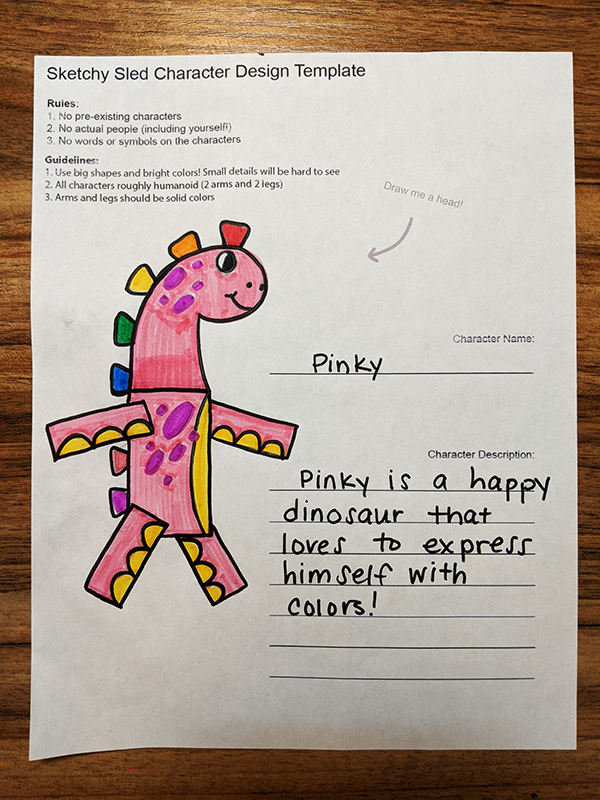 Sketchy Sled Character Design Template
Rules:
1. No pre-existing characters
2. No actual people (including yourself)
3. No words or symbols on the characters
Guidelines:
1. Use big shapes and bright colors! Small details will be hard to see
2. All characters roughly humanoid (2 arms and 2 legs)
3. Arms and legs should be solid colors
Draw me a head!
Character Name:
Pinky
Character Description:
Pinky is a happy
dinosaur that
loves to express
himself with
colors!